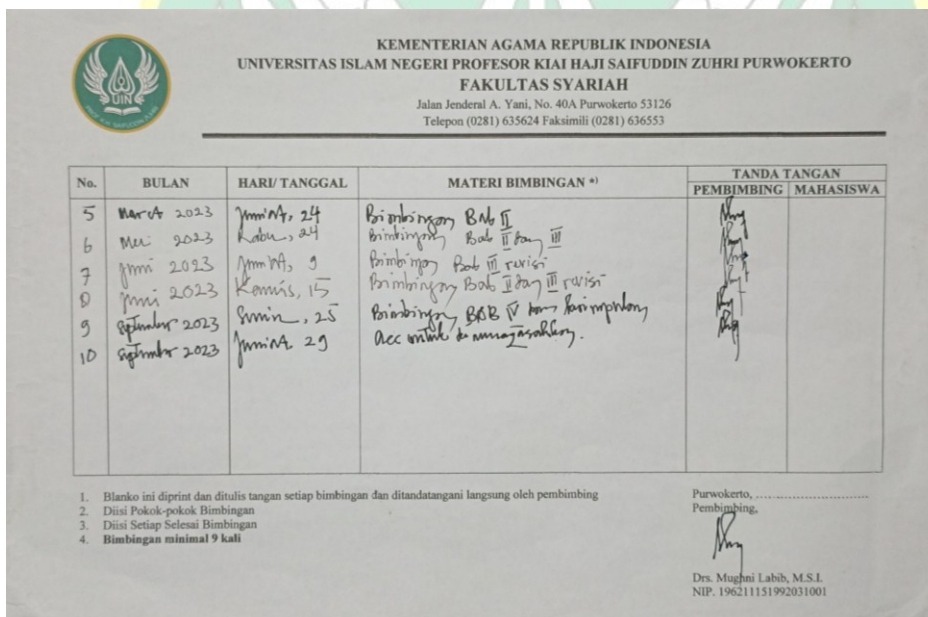 KEMENTERIAN AGAMA REPUBLIK INDONESIA
UNIVERSITAS ISLAM NEGERI PROFESOR KIAI HAJI SAIFUDDIN ZUHRI PURWOKERTO
FAKULTAS SYARIAH
Jalan Jenderal A. Yani, No. 40A Purwokerto 53126
Telepon (0281) 635624 Faksimili (0281) 636553
UIN
No. BULAN HARI/ TANGGAL MATERI BIMBINGAN *) TANDA TANGAN
PEMBIMBING MAHASISWA
5 Maret 2023 Jum'at, 24 Bimbingan Bab II
6 Mei 2023 Rabu, 24 Bimbingan Bab II dan III
7 Juni 2023 Jum'at, 9 Bimbingan Bab III revisi
8 Juni 2023 Kamis, 15 Bimbingan Bab II dan III revisi
9 September 2023 Senin, 25 Bimbingan BAB IV dan kesimpulan
10 September 2023 Jum'at 29 acc untuk di munaqasahkan.
1. Blanko ini diprint dan ditulis tangan setiap bimbingan dan ditandatangani langsung oleh pembimbing
2. Diisi Pokok-pokok Bimbingan
3. Diisi Setiap Selesai Bimbingan
4. Bimbingan minimal 9 kali
Purwokerto, ..............................
Pembimbing,
Drs. Mughni Labib, M.S.I.
NIP. 196211151992031001